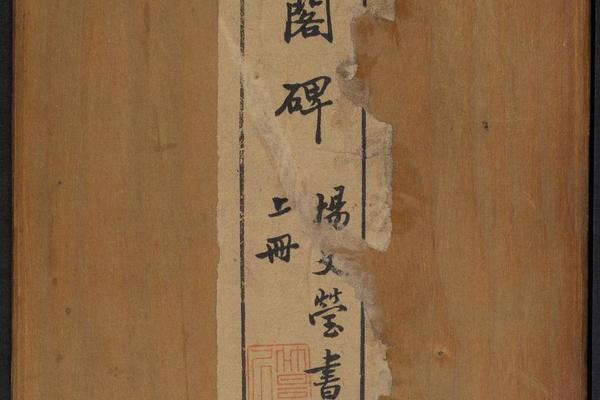 閣碑
楊文瑩書
上冊